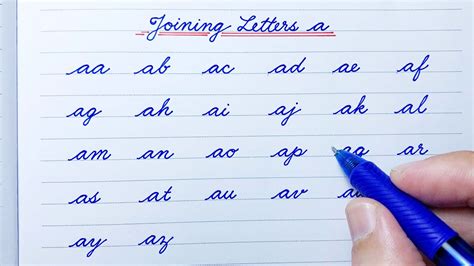 Joining Letters a
aa ab ac ad ae af
ag ah ai aj ak al
am an ao ap aq ar
as at au av
ay az